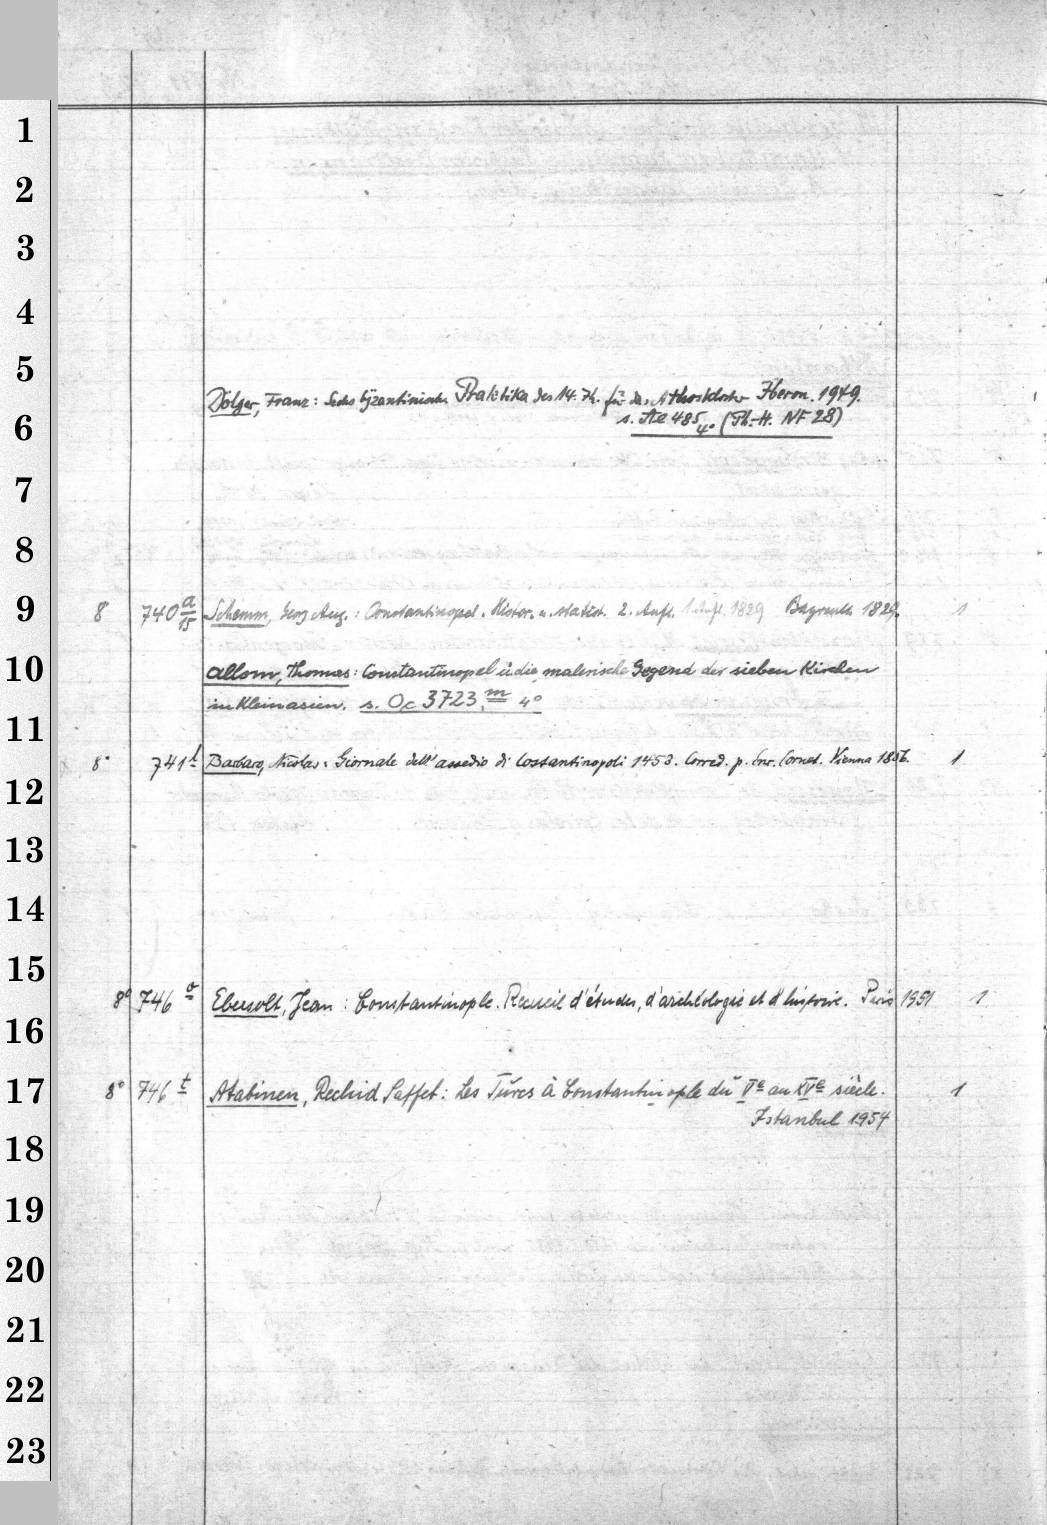 1
2
3
4
5
Dölger, Franz: Sechs byzantinische Praktika des 14. Jh. für das Athoskloster Iberon. 1949.
6
s. Ae 485 4° (Ph.-H. NF 28)
7
8
9
8 740 a/15 Schemm, Georg Aug.: Constantinopel. Histor. u. statist. 2. Aufl. 1. Aufl. 1829 Bayreuth 1829. 1
10
Allom, Thomas: Constantinopel u die malerische Gegend der sieben Kirchen
in Kleinasien. s. Oc 3723 m 4°
11
8° 741 Barbaro, Nicolas: Giornale dell'assedio di Costantinopoli 1453. Corred. p. Enr. Cornet. Vienna 1856. 1
12
13
14
15
8° 746 Ebersolt, Jean: Constantinople. Recueil d'études, d'archéologie et d'histoire. Paris 1951 1
16
17
8° 746 t Atabinen, Rechid Saffet: Les Turcs à Constantinople du Ve au XVe siècle. 1
Istanbul 1954
18
19
20
21
22
23